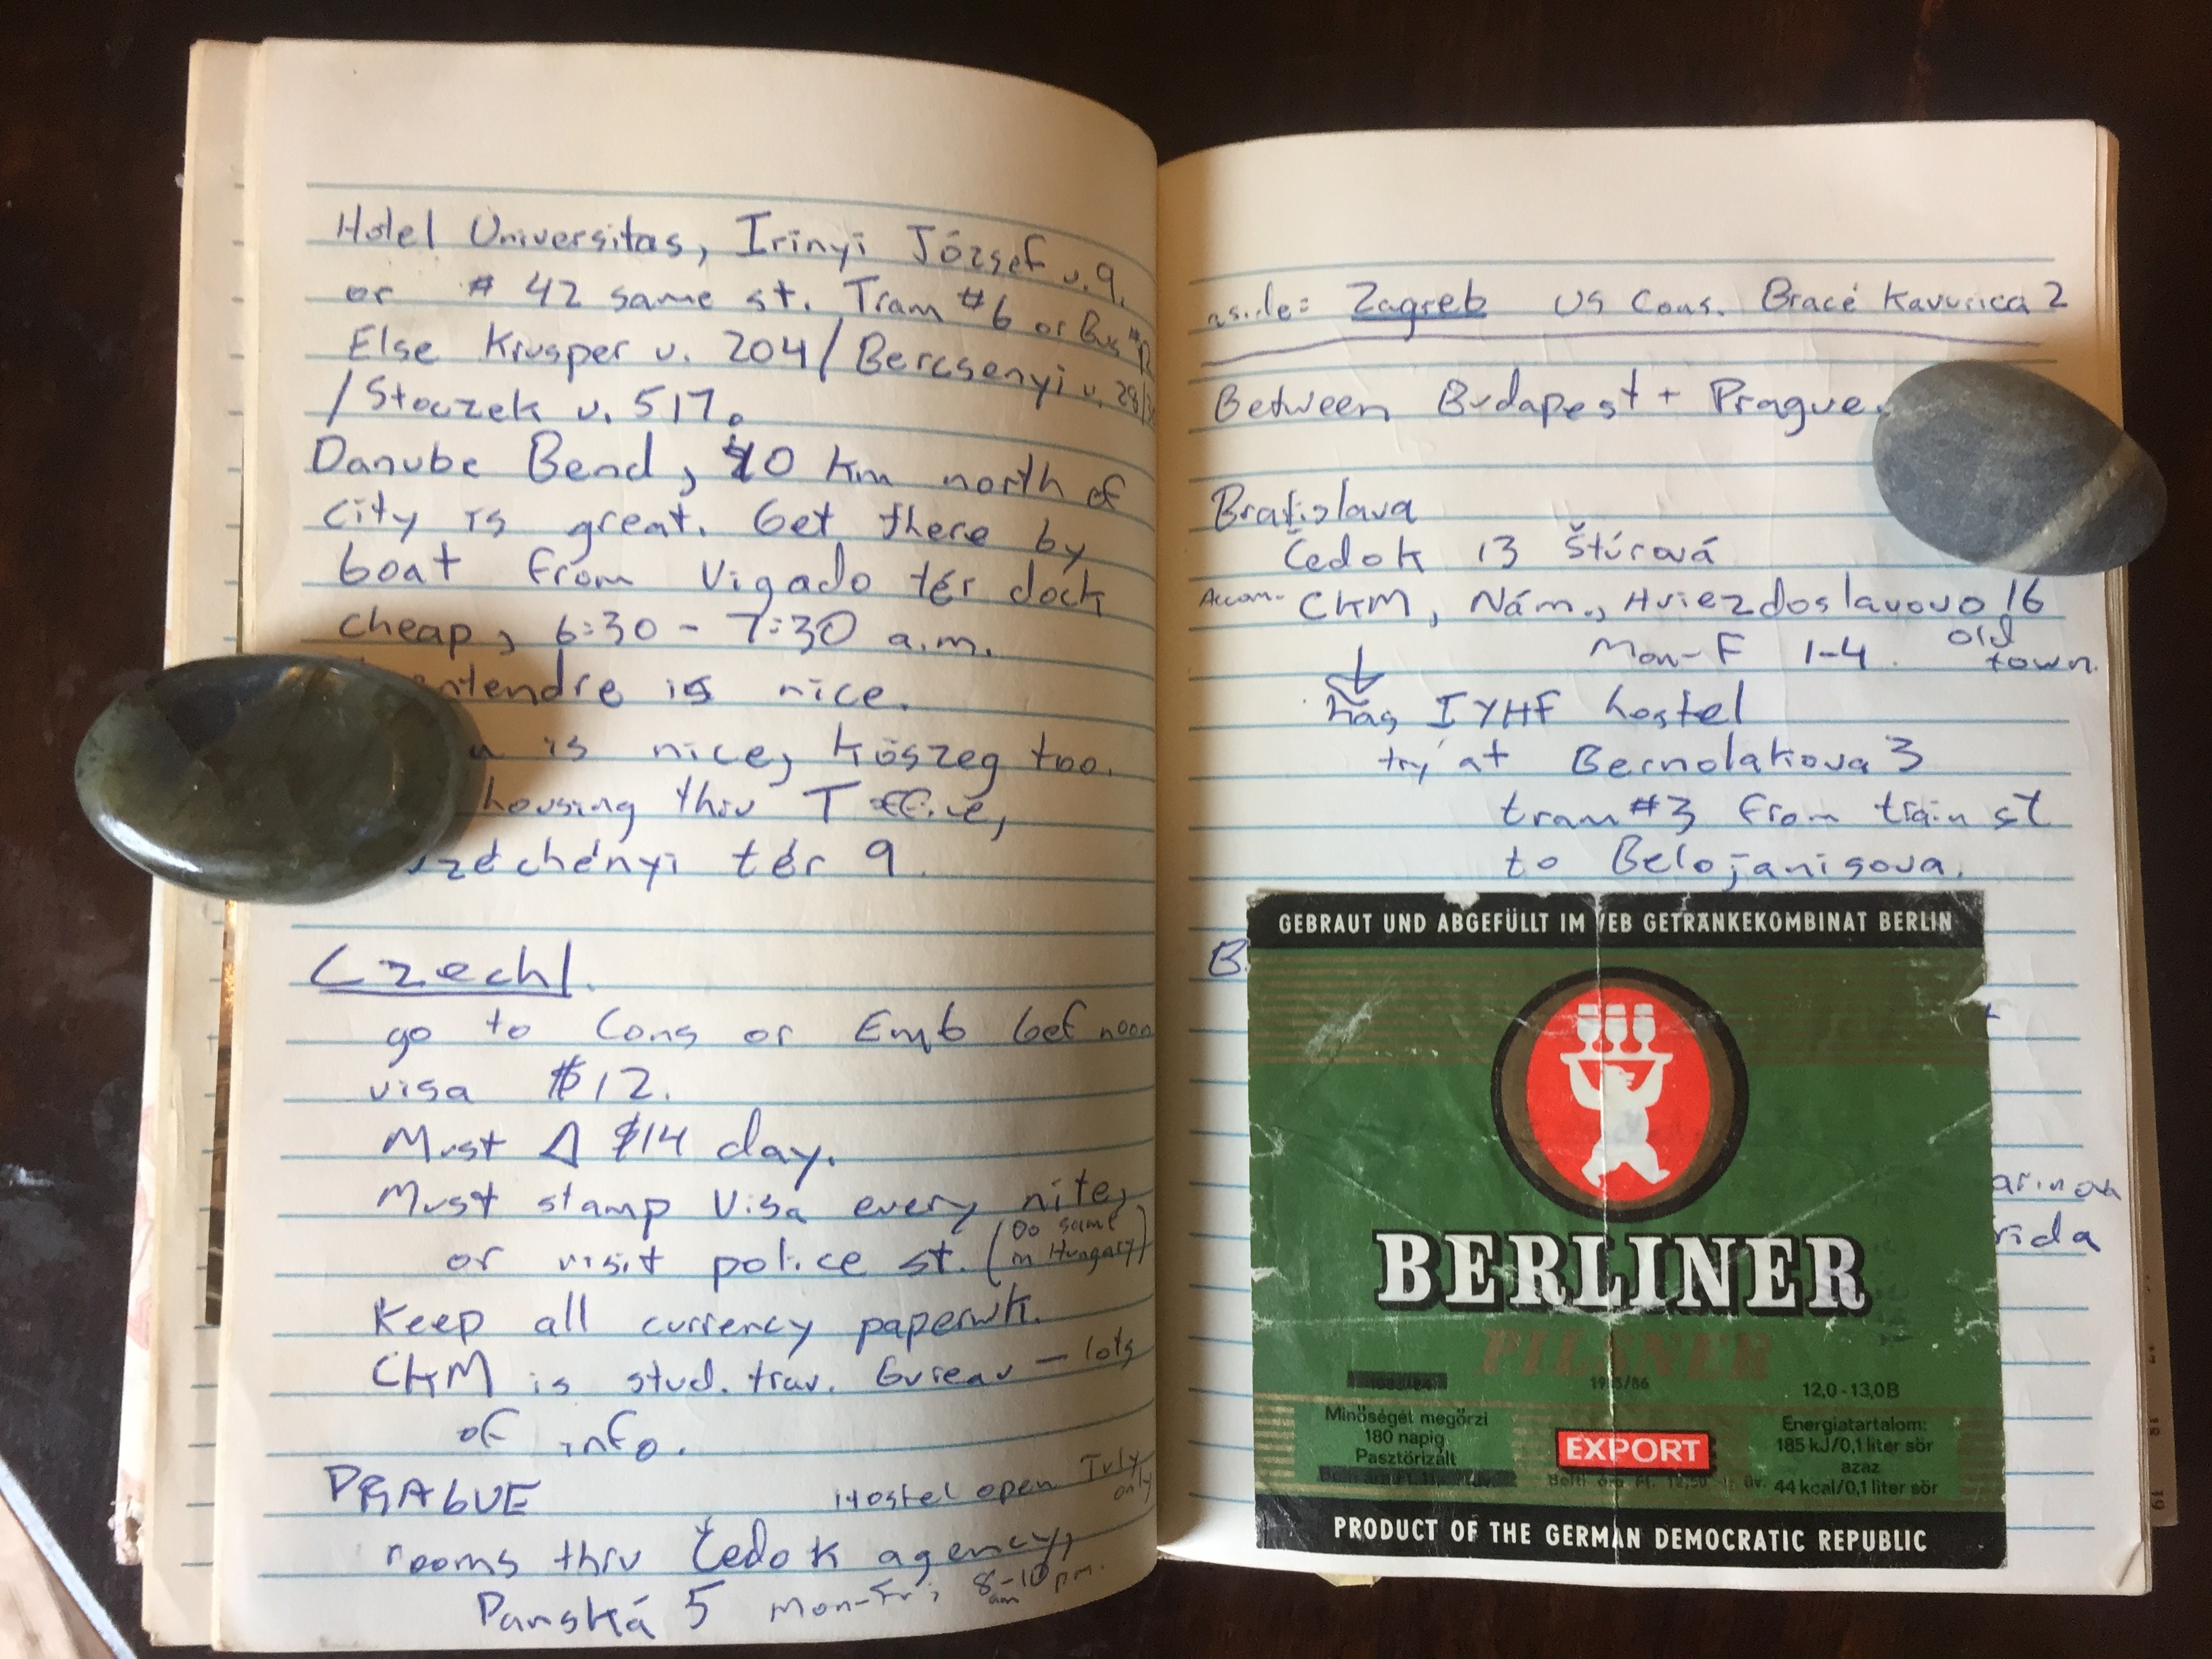 Hotel Universitas, Irinyi József u. 9.
or # 42 same st. Tram #6 or Bus #12
Else Krusper u. 204/Bercsenyi u. 28/
/Stoczek u. 517.
Danube Bend, 40 km north of
city is great. Get there by
boat from Vigado tér dock
cheap, 6:30 - 7:30 a.m.
entendre is nice.
is nice, Köszeg too.
housing thru T office,
zéchényi tér 9.
Czechl.
go to Cons or Emb bef noon
visa $12.
Must Δ $14 day.
Must stamp Visa every nite,
or visit police st. (Do same
in Hungary)
Keep all currency paperwk.
CKM is stud. trav. bureau - lots
of info.
PRAGUE Hostel open July
only
rooms thru Čedok agency,
Panská 5 Mon-Fri 8am-10pm.
aside: Zagreb US Cons. Bracé Kavurica 2
Between Budapest + Prague.
Bratislava
Čedok 13 Štúrová
Accom- CKM, Nám., Hviezdoslavovo 16
Mon-F 1-4. old
town.
has IYHF hostel
try at Bernolakova 3
tram #3 from train st
to Belojanisova.
B
GEBRAUT UND ABGEFÜLLT IM VEB GETRÄNKEKOMBINAT BERLIN
arinov
rida
BERLINER
PILSNER
1985/86
12,0-13,0B
Minőségét megőrzi
180 napig
Pasztörizált
EXPORT
Energiatartalom:
185 kJ/0,1 liter sör
azaz
44 kcal/0,1 liter sör
PRODUCT OF THE GERMAN DEMOCRATIC REPUBLIC